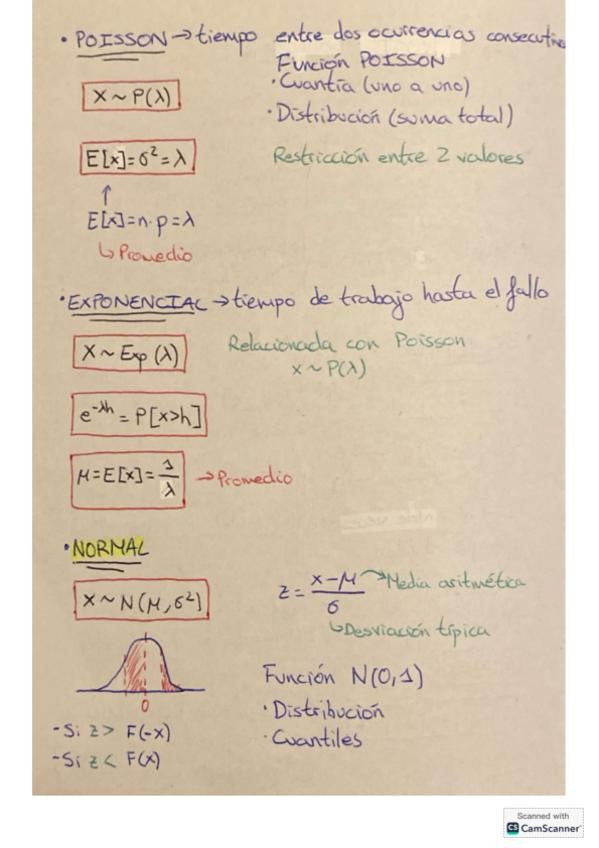 · POISSON → tiempo entre dos ocurrencias consecutiva
Función POISSON
· Cuantía (uno a uno)
X ~ P(λ)
· Distribución (suma total)
E[x]=σ²=λ
Restricción entre 2 valores
↑
E[x]=n·p=λ
↳ Promedio
· EXPONENCIAL → tiempo de trabajo hasta el fallo
X ~ Exp (λ)
Relacionada con Poisson
x ~ P(λ)
e^-λh = P[x>h]
μ=E[x]=1/λ → Promedio
· NORMAL
X ~ N(μ,σ²)
z = (x-μ)/σ → Media aritmética
↳ Desviación típica
0
Función N(0,1)
· Distribución
· Cuantiles
- Si z > F(-x)
- Si z < F(x)
Scanned with
CS CamScanner